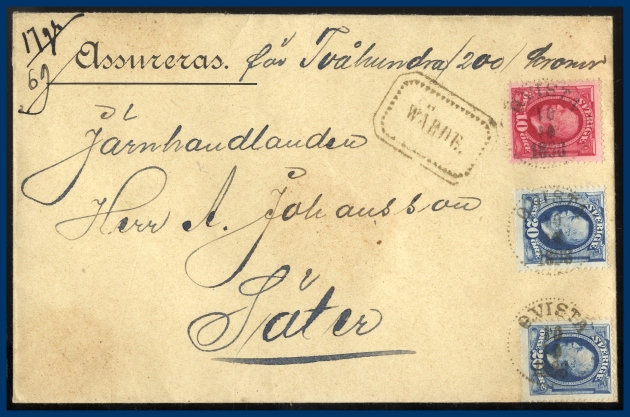 17gr
69
Assureras. för Tvåhundra/200/Kronor
WÄRDE.
Till
Järnhandlanden
Herr A. Johansson
Säter
SVERIGE
10
QVIST
SVERIGE
20
QVIST
SVERIGE
20